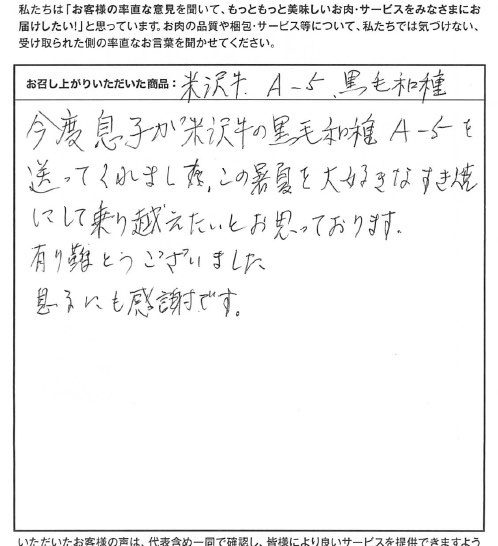 私たちは「お客様の率直な意見を聞いて、もっともっと美味しいお肉・サービスをみなさまにお
届けしたい!」と思っています。お肉の品質や梱包・サービス等について、私たちでは気づけない、
受け取られた側の率直なお言葉を聞かせてください。
お召し上がりいただいた商品: 米沢牛 A-5 黒毛和種
今度息子が米沢牛の黒毛和種 A-5を
送ってくれました。この暑夏を大好きなすき焼
にして乗り越えたいとお思っております。
有り難とうございました
息子にも感謝です。
いただいたお客様の声は、代表含め一同で確認し、皆様により良いサービスを提供できますよう